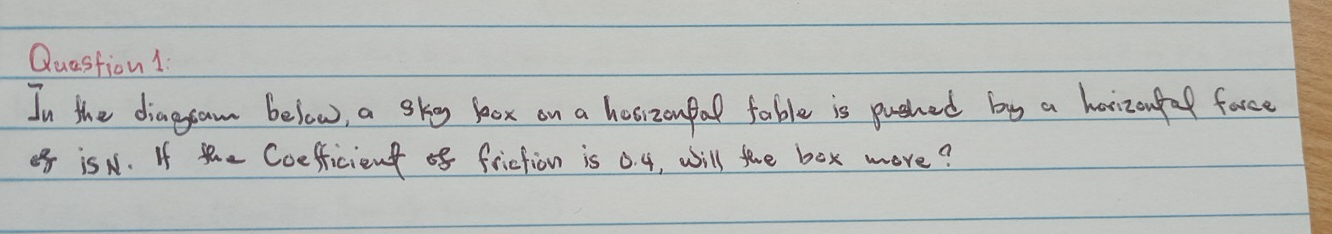 Question 1:
In the diagram below, a 5kg box on a horizontal table is pushed by a horizontal force
of 15N. If the Coefficient of friction is 0.4, will the box move?